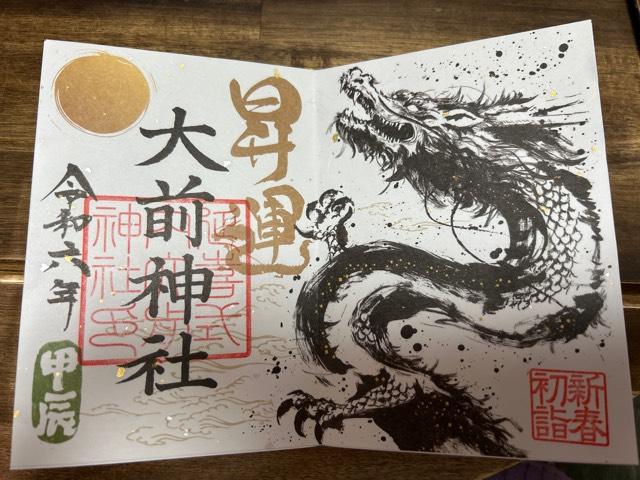 新春
初詣
昇運
大前神社
延喜式
神社印
令和六年
甲辰